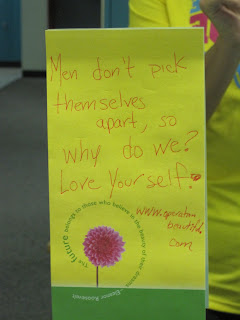 Men don't pick
themselves
apart, so
why do we?
Love Yourself.
www.operation
beautiful.
com
The future belongs to those who believe in the beauty of their dreams
Eleanor Roosevelt